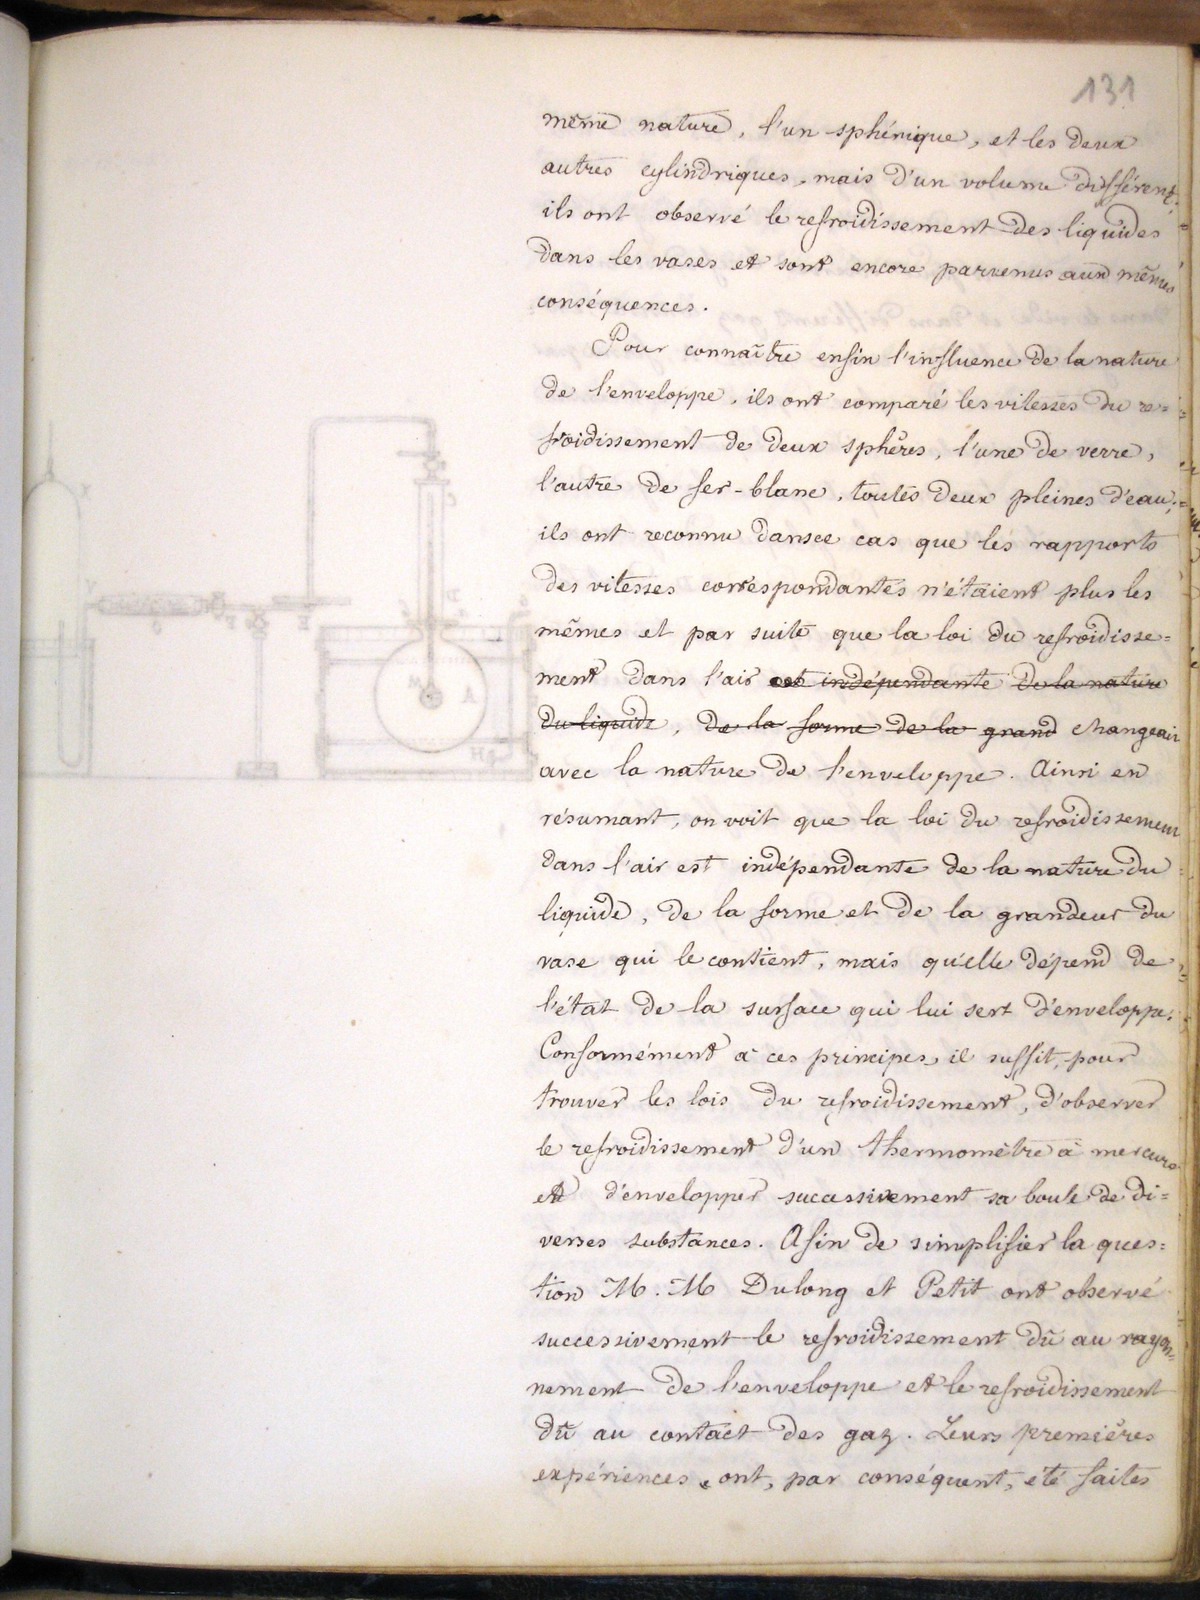 131
même nature, l'un sphérique, et les deux
autres cylindriques, mais d'un volume différent;
ils ont observé le refroidissement des liquides
dans les vases et sont encore parvenus aux mêmes
conséquences.
Pour connaître enfin l'influence de la nature
de l'enveloppe, ils ont comparé les vitesses du re=
froidissement de deux sphères, l'une de verre,
l'autre de fer-blanc, toutes deux pleines d'eau;
ils ont reconnu dans ce cas que les rapports
des vitesses correspondantes n'étaient plus les
mêmes et par suite que la loi du refroidisse=
ment dans l'air est indépendante de la nature
du liquide, de la forme de la grand changeait
avec la nature de l'enveloppe. Ainsi en
résumant, on voit que la loi du refroidissement
dans l'air est indépendante de la nature du
liquide, de la forme et de la grandeur du
vase qui le contient, mais qu'elle dépend de
l'état de la surface qui lui sert d'enveloppe.
Conformément à ces principes, il suffit, pour
trouver les lois du refroidissement, d'observer
le refroidissement d'un thermomètre à mercure
et d'envelopper successivement sa boule de di=
verses substances. Afin de simplifier la ques=
tion M. M Dulong et Petit ont observé
successivement le refroidissement dû au rayon=
nement de l'enveloppe et le refroidissement
dû au contact des gaz. Leurs premières
expériences ont, par conséquent, été faites
A
M
H